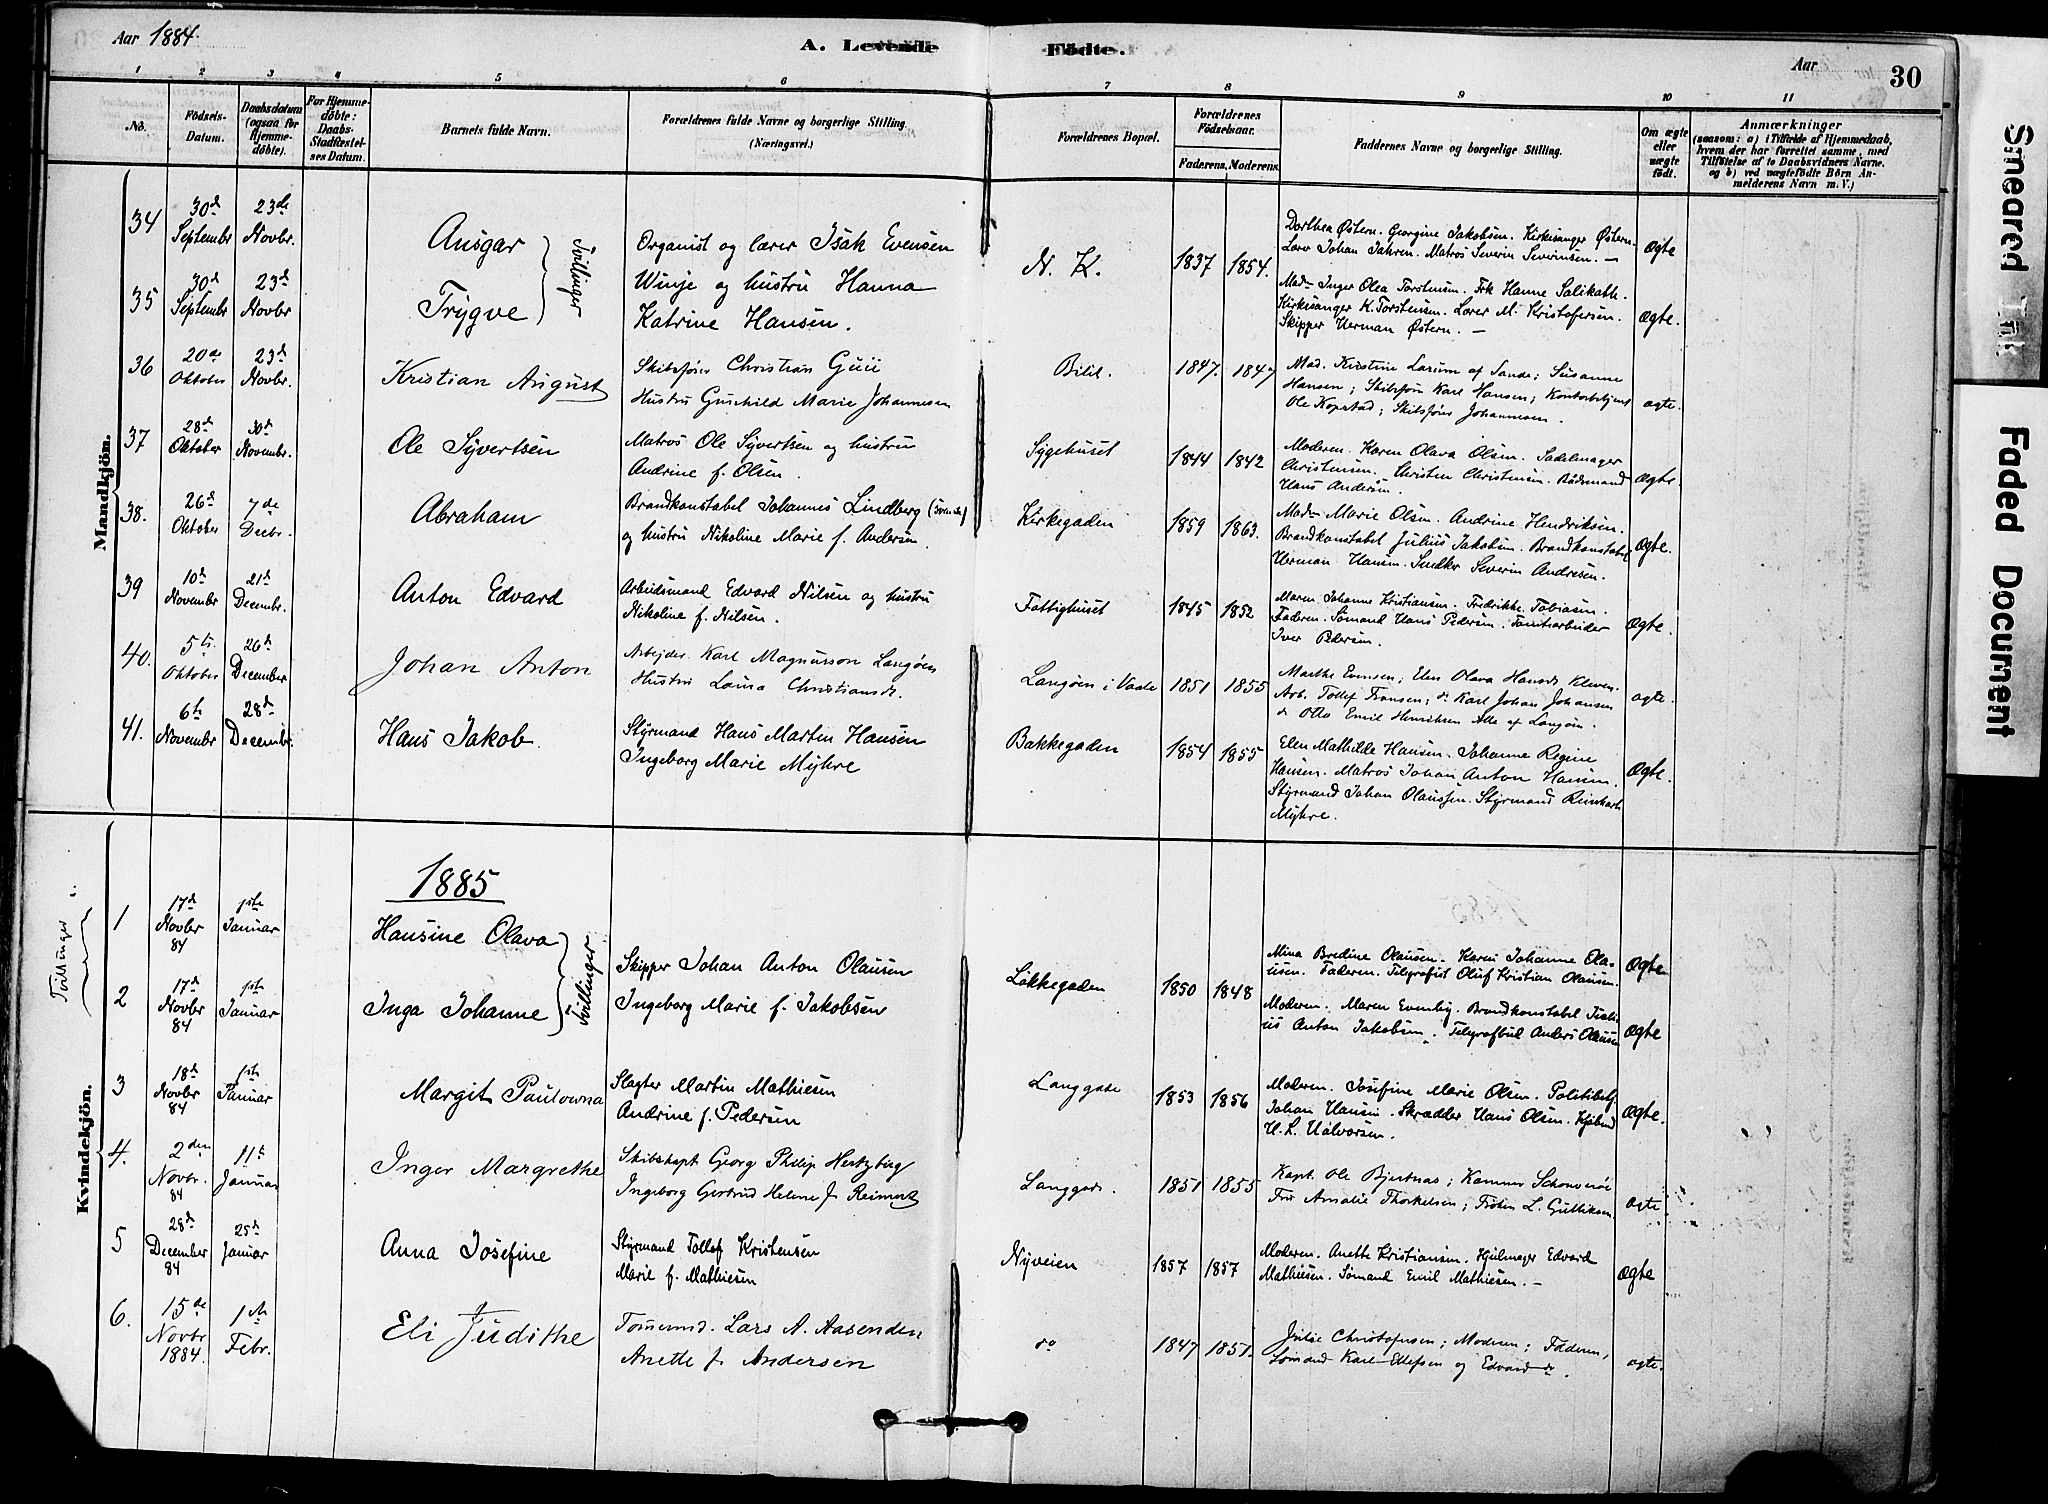 Aar 1884.
A. Levende Fødte.
Aar
30
1 2 3 4 5 6 7 8 9 10 11
No.
Fødsels-Datum.
Daabsdatum (ogsaa for Hjemme-døbte).
For Hjemme-døbte: Daabs-Stadfæstel-ses Datum.
Barnets fulde Navn.
Forældrenes fulde Navne og borgerlige Stilling. (Næringsvei.)
Forældrenes Bopæl.
Forældrenes Fødselsaar.
Faderens. Moderens.
Faddernes Navne og borgerlige Stilling.
Om ægte eller uægte født.
Anmærkninger
(saasom: a) i Tilfælde af Hjemmedaab,
hvem der har forrettet samme, med
Tilføielse af to Daabsvidners Navne.
og b) ved uægtefødte Børn An-
melderens Navn m. V.)
Mandkjön.
34 30d Septembr 23de Novbr. Ansgar
Tvillinger
Organist og lærer Isak Evensen
N. K. 1837 1854.
Dorthea Østern. Georgine Jakobsen. Kirkesanger Østern.
Lærer Johan Jahren. Matros Severin Severinsen. —
Ægte
35 30d Septembr 23d Novbr Trygve
Winje og hustru Hanna
Katrine Hansen.
Mad. Inger Olea Torstensen. Frk Hanne
Kirkesanger K. Torstensen. Lærer M. Kristofersen.
Skipper Herman Østern. —
Ægte.
36 20de Oktober 23d Novbr. Kristian August
Skibsfører Christian
Hustru Gunhild Marie Johannesen
1847. 1847
Mad. Kirstine Larum af Sande; Susanne
Hansen; Skibsfør Karl Hansen; Kontorbetjent
Ole Kopstad; Skibsfører Johannesen.
ægte.
37 28d Oktober 30d Novembr. Ole Syvertsen
Matros Ole Syvertsen og hustru
Andrine f. Olsen.
Sygehuset 1844 1842
Moderen. Karen Olava Olsen. Sadelmager
Christensen. Christen Christensen. Bødsmand
Hans Andersen.
Ægte.
38. 26d Oktober 7de Decbr. Abraham
Brandkonstabel Johannes Lindberg (svensk)
og hustru Nikoline Marie f. Andersen.
Kirkegaden 1859 1863.
Mad. Marie Olsen. Andrine Hendriksen.
Brandkonstabel Julius Jakobsen. Brandkonstabel
Herman Hansen. Snedker Severin Andresen.
Ægte.
39 10d Novembr 21d Decembr. Anton Edvard
Arbeidsmand Edvard Nilsen og hustru
Nikoline f. Nilsen.
Fattighuset 1845 1852
Maren Johanne Kristiansen. Fredrikke Tobiasen.
Faderen. Sømand Hans Pedersen. Tomtearbeider
Iver Pedersen.
Ægte.
40. 5te Oktober 26d December Johan Anton
Arbejder Karl Magnusson Langøen
Hustru Laura Christiansd.
Langøen i Vaale 1851 1855
Marthe Evensen; Elen Olava Hansd. Kleven.
Arb. Tollef Fransen; do Karl Johan Johansen
do Otto Emil Henriksen Alle af Langøen.
ægte.
41. 6te November 28d Decembr. Hans Jakob.
Styrmand Hans Martin Hansen
Ingeborg Marie Myhre
Bakkegaden 1854 1855
Elen Mathilde Hansen. Johanne Regine
Hansen. Matros Johan Anton Hansen.
Styrmand Johan Olaussen. Styrmand Reinhart
Myhre.
Ægte.
1885
Kvindekjön.
Tvillinger
1 17d Novbr 84 1ste Januar Hansine Olava
Tvillinger
Skipper Johan Anton Olausen
Løkkegaden 1850 1848
Mina Bredine Olausen. Karen Johanne Ola-
usen. Faderen. Telegrafist Oluf Kristian Olausen.
Ægte
2 17d Novbr 84 1ste Januar Inga Johanne
Ingeborg Marie f. Jakobsen
Moderen. Maren Evenby. Brandkonstabel Juli-
us Anton Jakobsen. Telegrafbud Anders Olausen
Ægte
3 18d Novbr 84 1ste Januar Margit Paulowna
Slagter Martin Mathiesen
Andrine f. Pedersen
Langgade 1853 1856
Moderen. Josefine Marie Olsen. Politibetj.
Johan Hansen. Skrædder Hans Olsen. Kjøbmd
H. L. Halvorsen.
Ægte.
4. 2den Novbr. 84 11te Januar Inger Margrethe
Skibskapt Georg Philip Hertzberg
Ingeborg Gertrud Helene f. Reimert
Langgade. 1851 1855
Kapt. Ole Bjertnæs; Kammer
Fru Amalie Thorkelsen; Frøken L. Gulliksen.
ægte
5 28d December 84 25d Januar Anna Josefine
Styrmand Tollef Kristensen
Marie f. Mathiesen
Nyveien 1857 1857
Moderen. Anette Kristiansen. Hjulmager Edvard
Mathiesen. Sømand Emil Mathiesen. —
Ægte
6. 15de Novbr 1884. 1ste Febr. Eli Judithe
Tømmermd. Lars A. Aasenden
Anette f. Andersen
do 1847 1851.
Julie Christofersen; Moderen; Faderen,
Sømand Karl Ellefsen og Edvard do.
ægte.
Smeared Ink
Faded Document